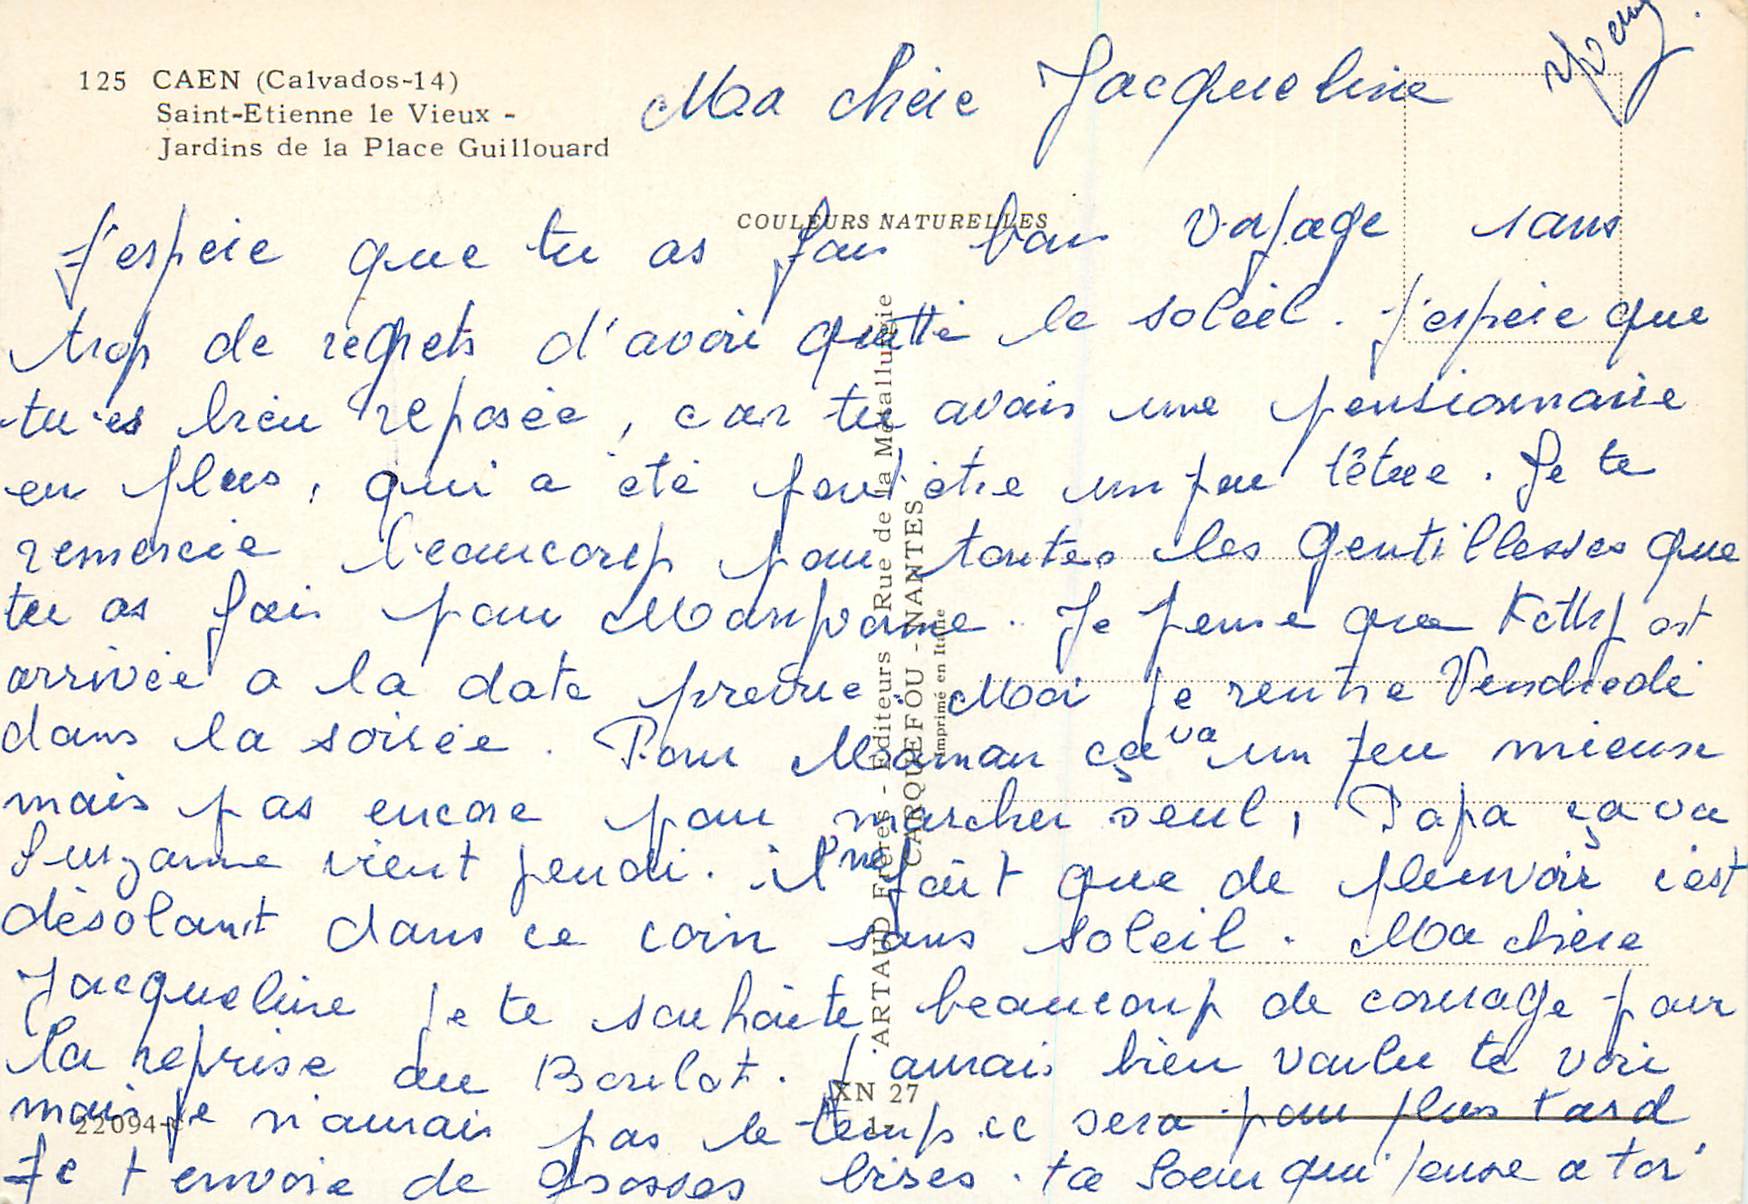 125 CAEN (Calvados-14)
Saint-Etienne le Vieux -
Jardins de la Place Guillouard
COULEURS NATURELLES
Ma chère Jacqueline
J'espère que tu as fais bon voyage sans
trop de regrets d'avoir quitté le soleil. J'espère que
tu es bien reposée, car tu avais une pensionnaire
en plus, qui a été peut être un peu têtue. Je te
remercie beaucoup pour toutes les gentillesses que
tu as fais pour Manpome. Je pense que Kathy est
arrivée a la date prevue. Moi je rentre Vendredi
dans la soirée. Pour Maman ça va un peu mieux
mais pas encore pour marcher seul, Papa ça va
Suzanne vient jeudi. il ne fait que de pleuvoir c'est
désolant dans ce coin sans soleil. Ma chère
Jacqueline je te souhaite beaucoup de courage pour
la reprise du Boulot. J'aurais bien voulu te voir
mais je n'aurais pas le temps ce sera pour plus tard
Je t envoie de Grosses bises. ta Soeur qui pense a toi
ARTAUD Frères - Editeurs - Rue de la Métallurgie
CARQUEFOU - NANTES
Imprimé en Italie
XN 27
22094-C